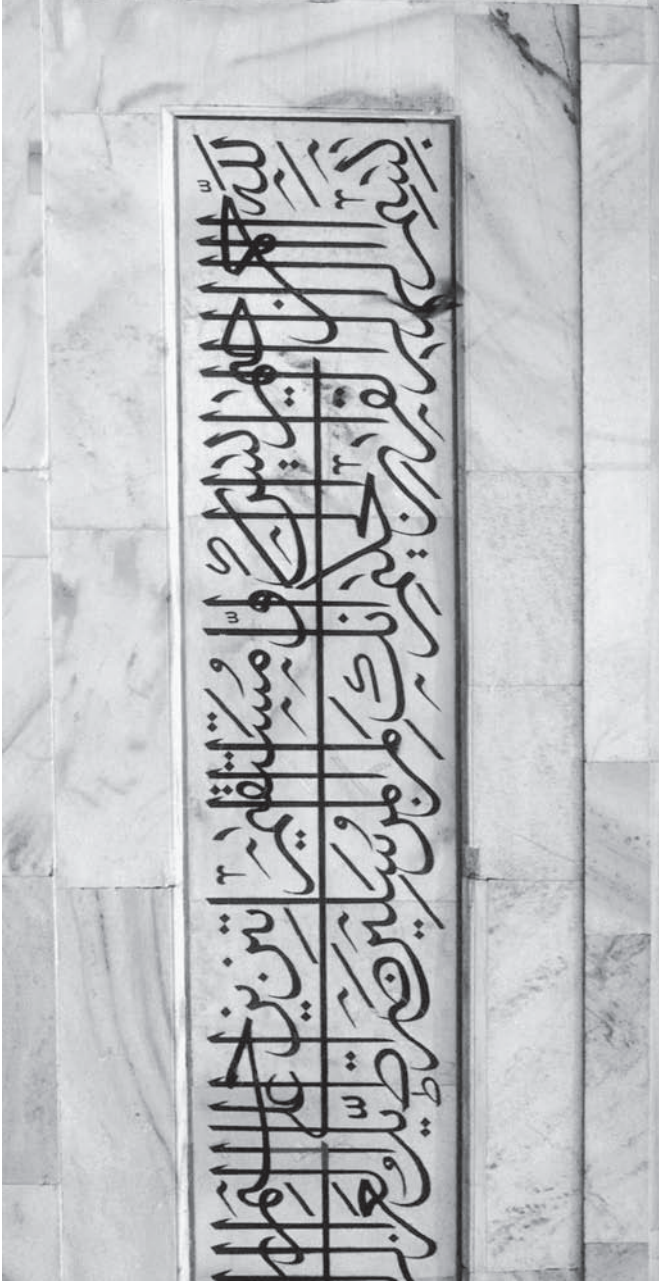 بسم الله الرحمن الرحيم يس والقرآن الحكيم إنك لمن المرسلين على صراط مستقيم تنزيل